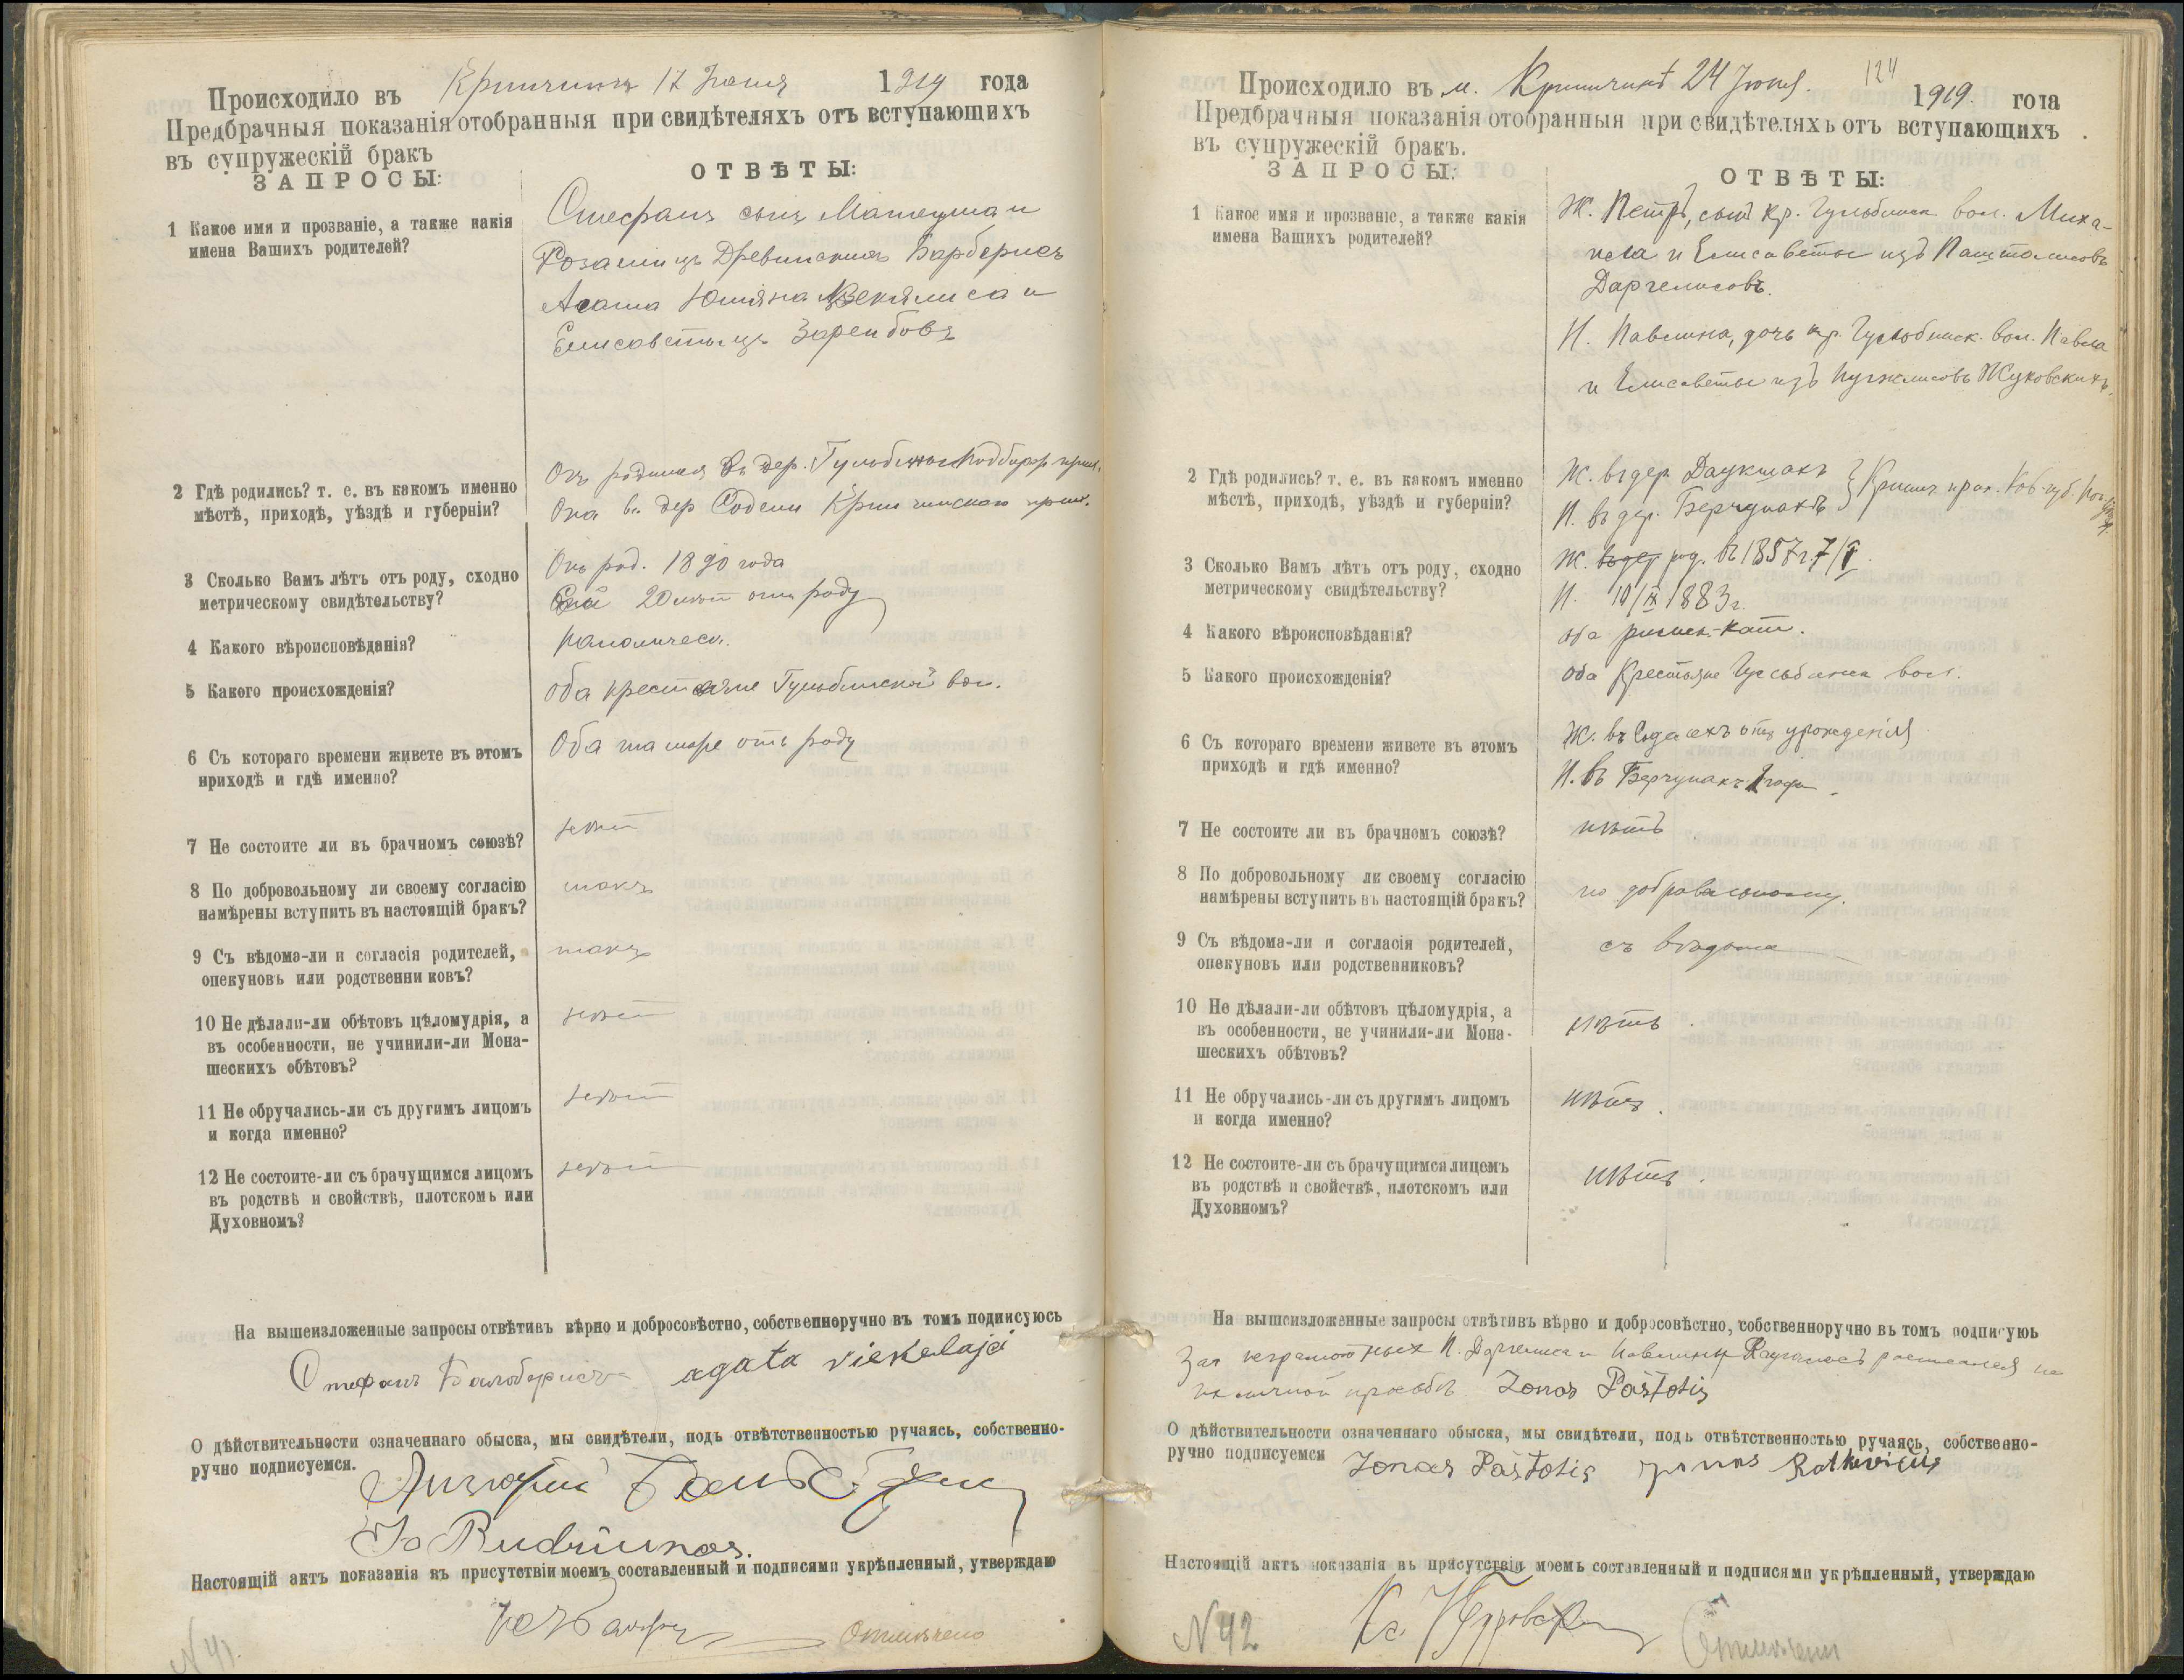 Происходило въ Кринчинъ 17 Іюня 1919 года
Предбрачныя показанія отобранныя при свидѣтеляхъ отъ вступающихъ
въ супружескій бракъ
ЗАПРОСЫ:
ОТВѢТЫ:
1 Какое имя и прозваніе, а также какія
имена Вашихъ родителей?
Стефанъ сынъ Матеуша и
Розаліи
Агата
Елисаветы
2 Гдѣ родились? т. е. въ какомъ именно
мѣстѣ, приходѣ, уѣздѣ и губерніи?
Онъ родился въ дер.
Она въ дер
3 Сколько Вамъ лѣтъ отъ роду, сходно
метрическому свидѣтельству?
Онъ род. 1890 года
20 лѣтъ отъ роду
4 Какого вѣроисповѣданія?
католическ.
5 Какого происхожденія?
Оба крестьяне Гульбинской вол.
6 Съ котораго времени живете въ этомъ
приходѣ и гдѣ именно?
Оба отъ роду
7 Не состоите ли въ брачномъ союзѣ?
нѣтъ
8 По добровольному ли своему согласію
намѣрены вступить въ настоящій бракъ?
такъ
9 Съ вѣдома-ли и согласія родителей,
опекуновъ или родственни ковъ?
такъ
10 Не дѣлали-ли обѣтовъ цѣломудрія, а
въ особенности, не учинили-ли Мона-
шескихъ обѣтовъ?
нѣтъ
11 Не обручались-ли съ другимъ лицомъ
и когда именно?
нѣтъ
12 Не состоите-ли съ брачущимся лицомъ
въ родствѣ и свойствѣ, плотскомъ или
Духовномъ?
нѣтъ
На вышеизложенные запросы отвѣтивъ вѣрно и добросовѣстно, собственноручно въ томъ подписуюсь
Стефанъ agata viekelaja
О дѣйствительности означеннаго обыска, мы свидѣтели, подъ отвѣтственностью ручаясь, собственно-
ручно подписуемся.
Настоящій актъ показанія въ присутствіи моемъ составленный и подписями укрѣпленный, утверждаю
Отмѣчено
N 41.
124
Происходило въ м. Кринчинѣ 24 Іюня. 1919 года
Предбрачныя показанія отобранныя при свидѣтеляхъ отъ вступающихъ
въ супружескій бракъ.
ЗАПРОСЫ:
ОТВѢТЫ:
1 Какое имя и прозваніе, а также какія
имена Вашихъ родителей?
Ж. Петръ, сынъ кр. Гульбинск вол. Миха-
ила и Елисаветы изъ Паштолисовъ
Даргелисовъ.
Н. Павлина, дочь кр. Гульбинск. вол. Павла
и Елисаветы изъ Жуковскихъ.
2 Гдѣ родились? т. е. въ какомъ именно
мѣстѣ, приходѣ, уѣздѣ и губерніи?
Ж. въ дер. Даукшахъ
Н. въ дер. Берчунахъ
3 Сколько Вамъ лѣтъ отъ роду, сходно
метрическому свидѣтельству?
Ж. род. въ 1857 г.
Н. 10/IX 1883 г.
4 Какого вѣроисповѣданія?
оба римск-кат.
5 Какого происхожденія?
оба крестьяне Гульбинск вол.
6 Съ котораго времени живете въ этомъ
приходѣ и гдѣ именно?
Ж. въ отъ урожденія
Н. въ Берчунахъ
7 Не состоите ли въ брачномъ союзѣ?
нѣтъ
8 По добровольному ли своему согласію
намѣрены вступить въ настоящій бракъ?
по добровольному.
9 Съ вѣдома-ли и согласія родителей,
опекуновъ или родственниковъ?
съ вѣдома
10 Не дѣлали-ли обѣтовъ цѣломудрія, а
въ особенности, не учинили-ли Мона-
шескихъ обѣтовъ?
нѣтъ.
11 Не обручались-ли съ другимъ лицомъ
и когда именно?
нѣтъ.
12 Не состоите-ли съ брачущимся лицемъ
въ родствѣ и свойствѣ, плотскомъ или
Духовномъ?
нѣтъ.
На вышеизложенные запросы отвѣтивъ вѣрно и добросовѣстно, собственноручно въ томъ подписуюь
За неграмотныхъ П. Даргелиса и Павлины росписался по
ихъ личной просьбѣ Jonas Paštolis
О дѣйствительности означеннаго обыска, мы свидѣтели, подъ отвѣтственностью ручаясь, собственно-
ручно подписуемся Jonas Paštolis
Настоящій актъ показанія въ присутствіи моемъ составленный и подписями укрѣпленный, утверждаю
N 42
Отмѣчено